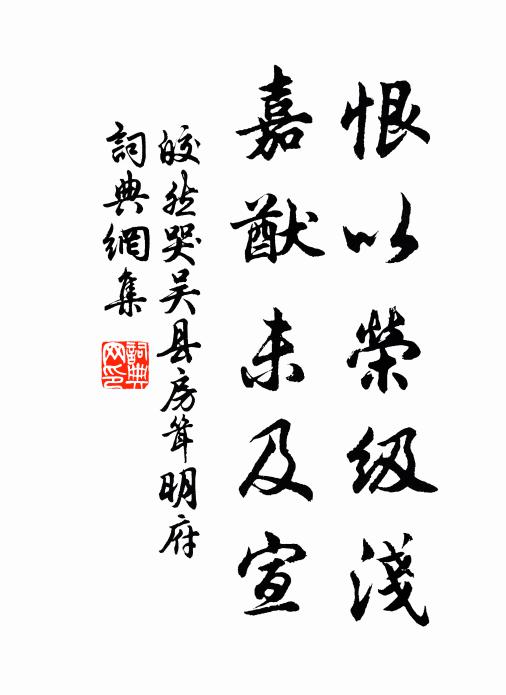 恨以榮級淺
嘉猷未及宣
皎然哭吴县房耸明府
詞典網集
詞典網印